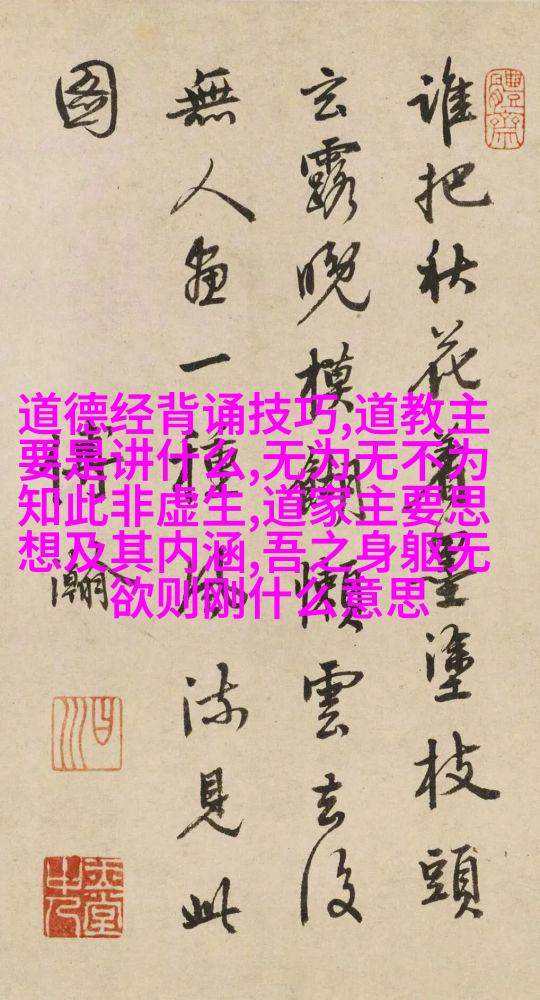 誰把秋花着墨塗枝頭
玄露晚模糊懶雲去後
無人畫一種風流見此
圖
道德经背诵技巧,道教主
要是讲什么,无为无不为
知此非虚生,道家主要思
想及其内涵,吾之身躯无
欲则刚什么意思